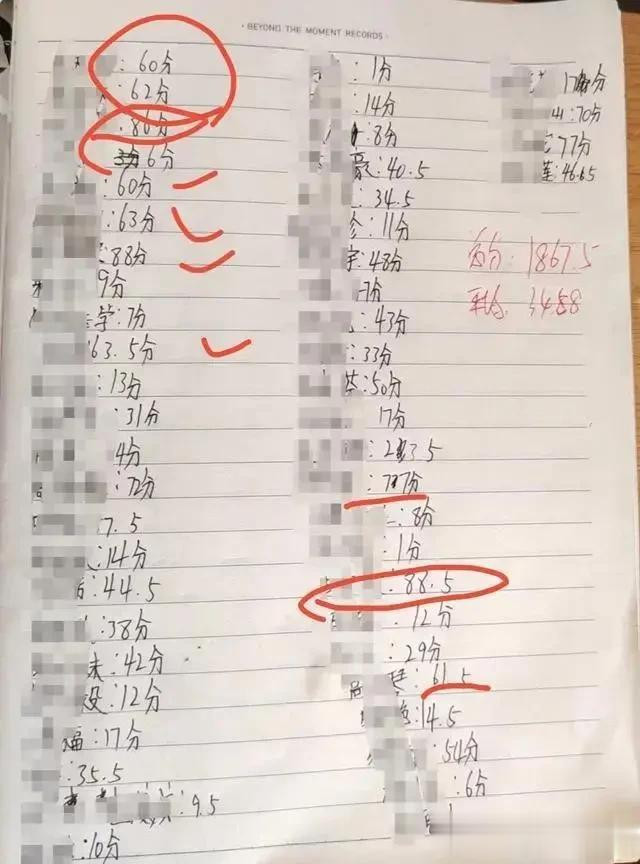 · BEYOND THE MOMENT RECORDS ·
: 60分
: 62分
: 86分
6分
: 60分
: 63分
: 88分
9分
学: 7分
63.5分
: 13分
: 31分
4分
: 72分
7.5
: 14分
: 44.5
: 38分
: 42分
: 12分
福: 17分
: 35.5
: 9.5
: 10分
: 1分
: 14分
: 8分
豪: 40.5
: 34.5
珍: 11分
宇: 48分
7分
: 43分
: 33分
: 50分
17分
3.5
分
: 8分
: 1分
: 88.5
: 12分
: 29分
: 61.5
: 4.5
: 54分
: 6分
分
: 70分
: 77分
莲: 46.5
总分: 1867.5